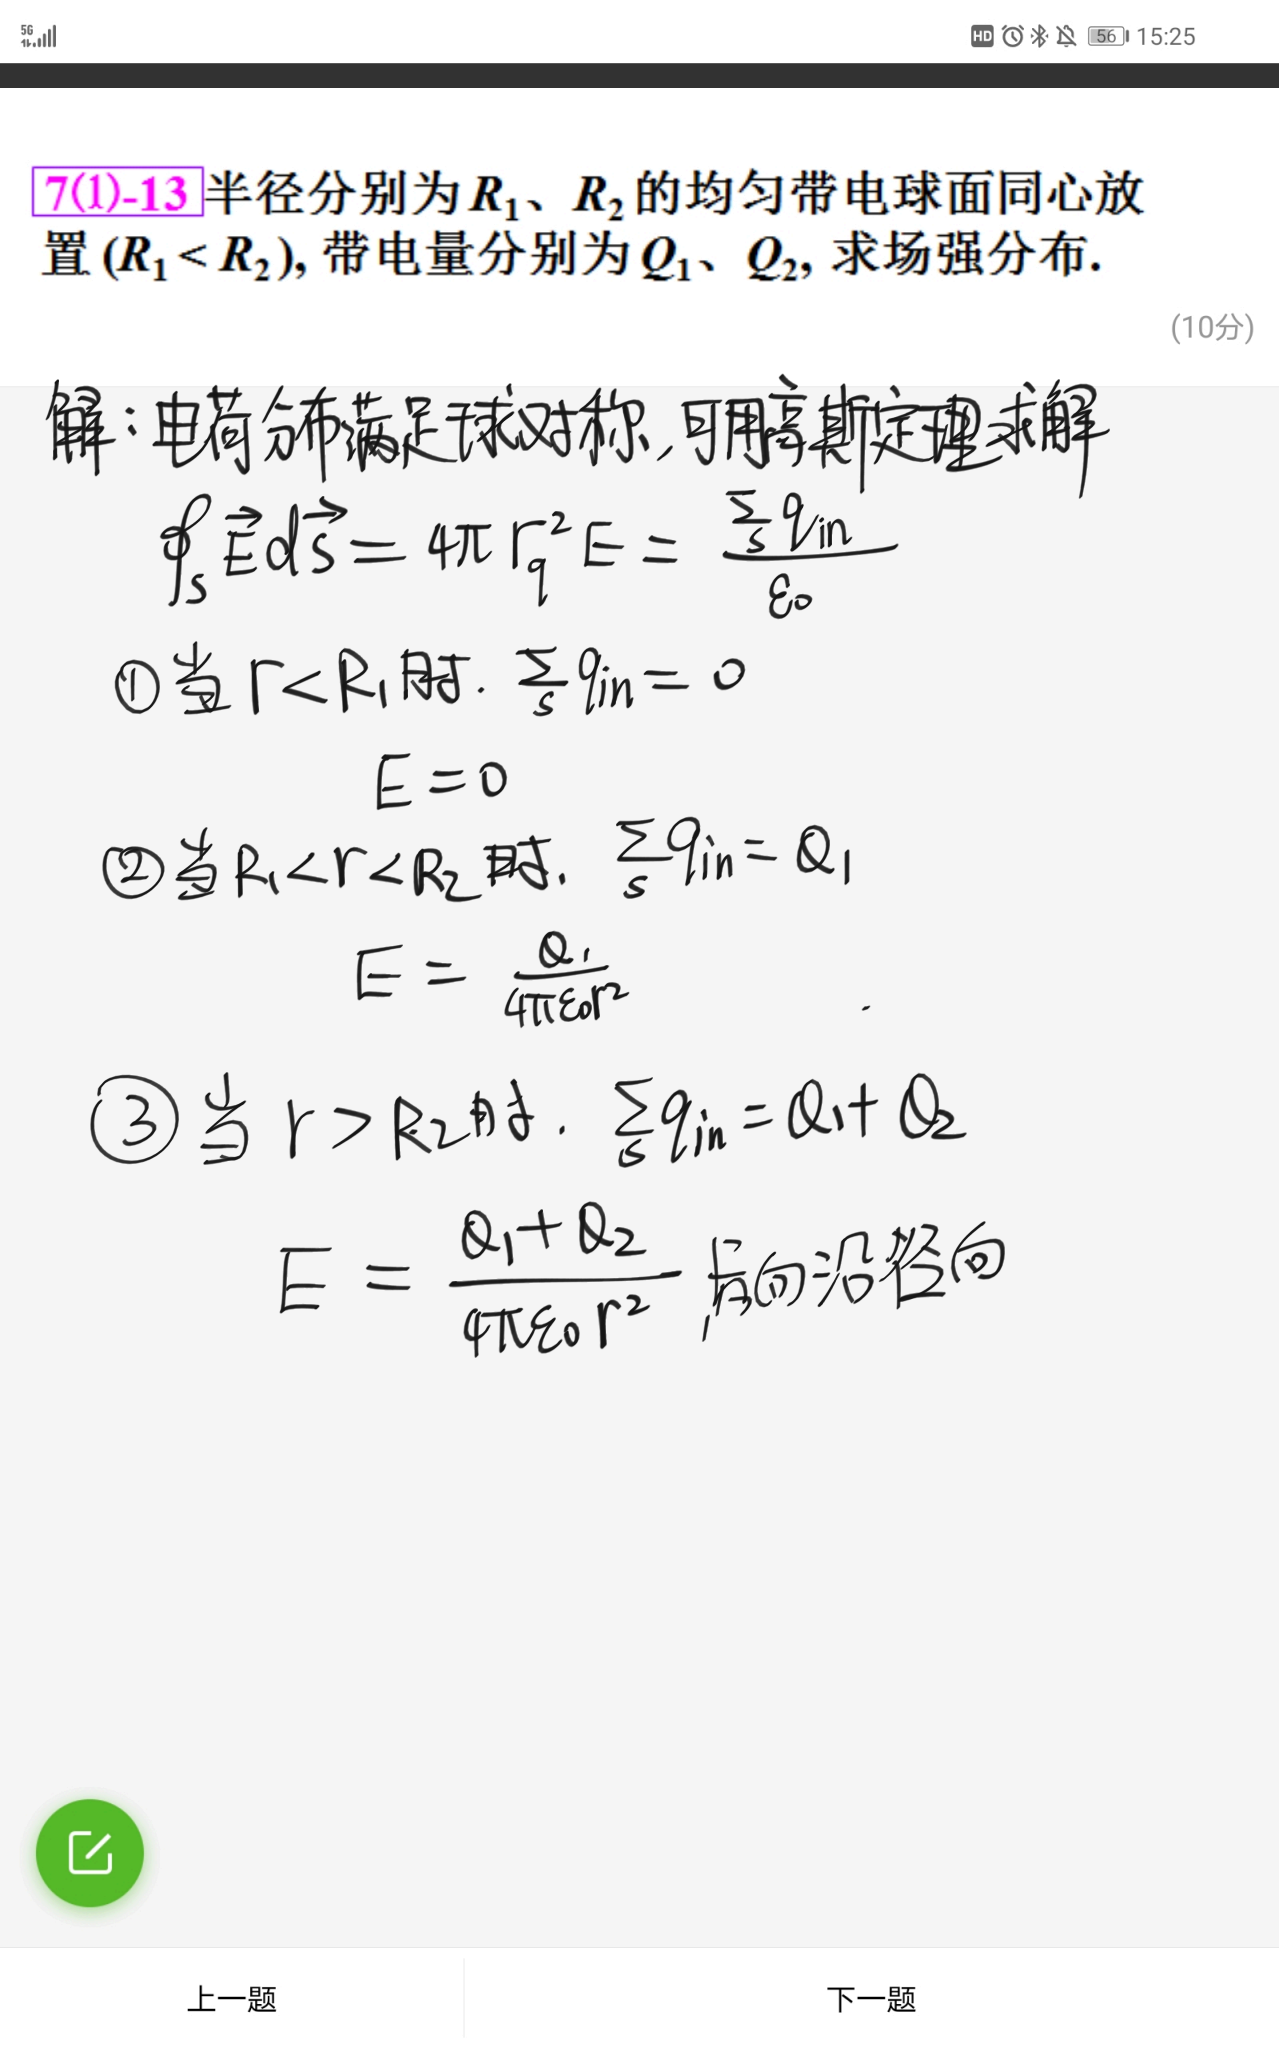 5G
HD 56 15:25
7(1)-13 半径分别为R₁、R₂的均匀带电球面同心放
置(R₁<R₂),带电量分别为Q₁、Q₂,求场强分布.
(10分)
解:电荷分布满足球对称,可用高斯定理求解
∮ₛ E⃗ dS⃗ = 4π r_q² E = Σ_s q_in / ε₀
①当 r<R₁时. Σ_s q_in = 0
E = 0
②当R₁<r<R₂时. Σ_s q_in = Q₁
E = Q₁ / 4πε₀r²
③当 r>R₂时. Σ_s q_in = Q₁+Q₂
E = Q₁+Q₂ / 4πε₀r² ,方向沿径向
上一题 下一题